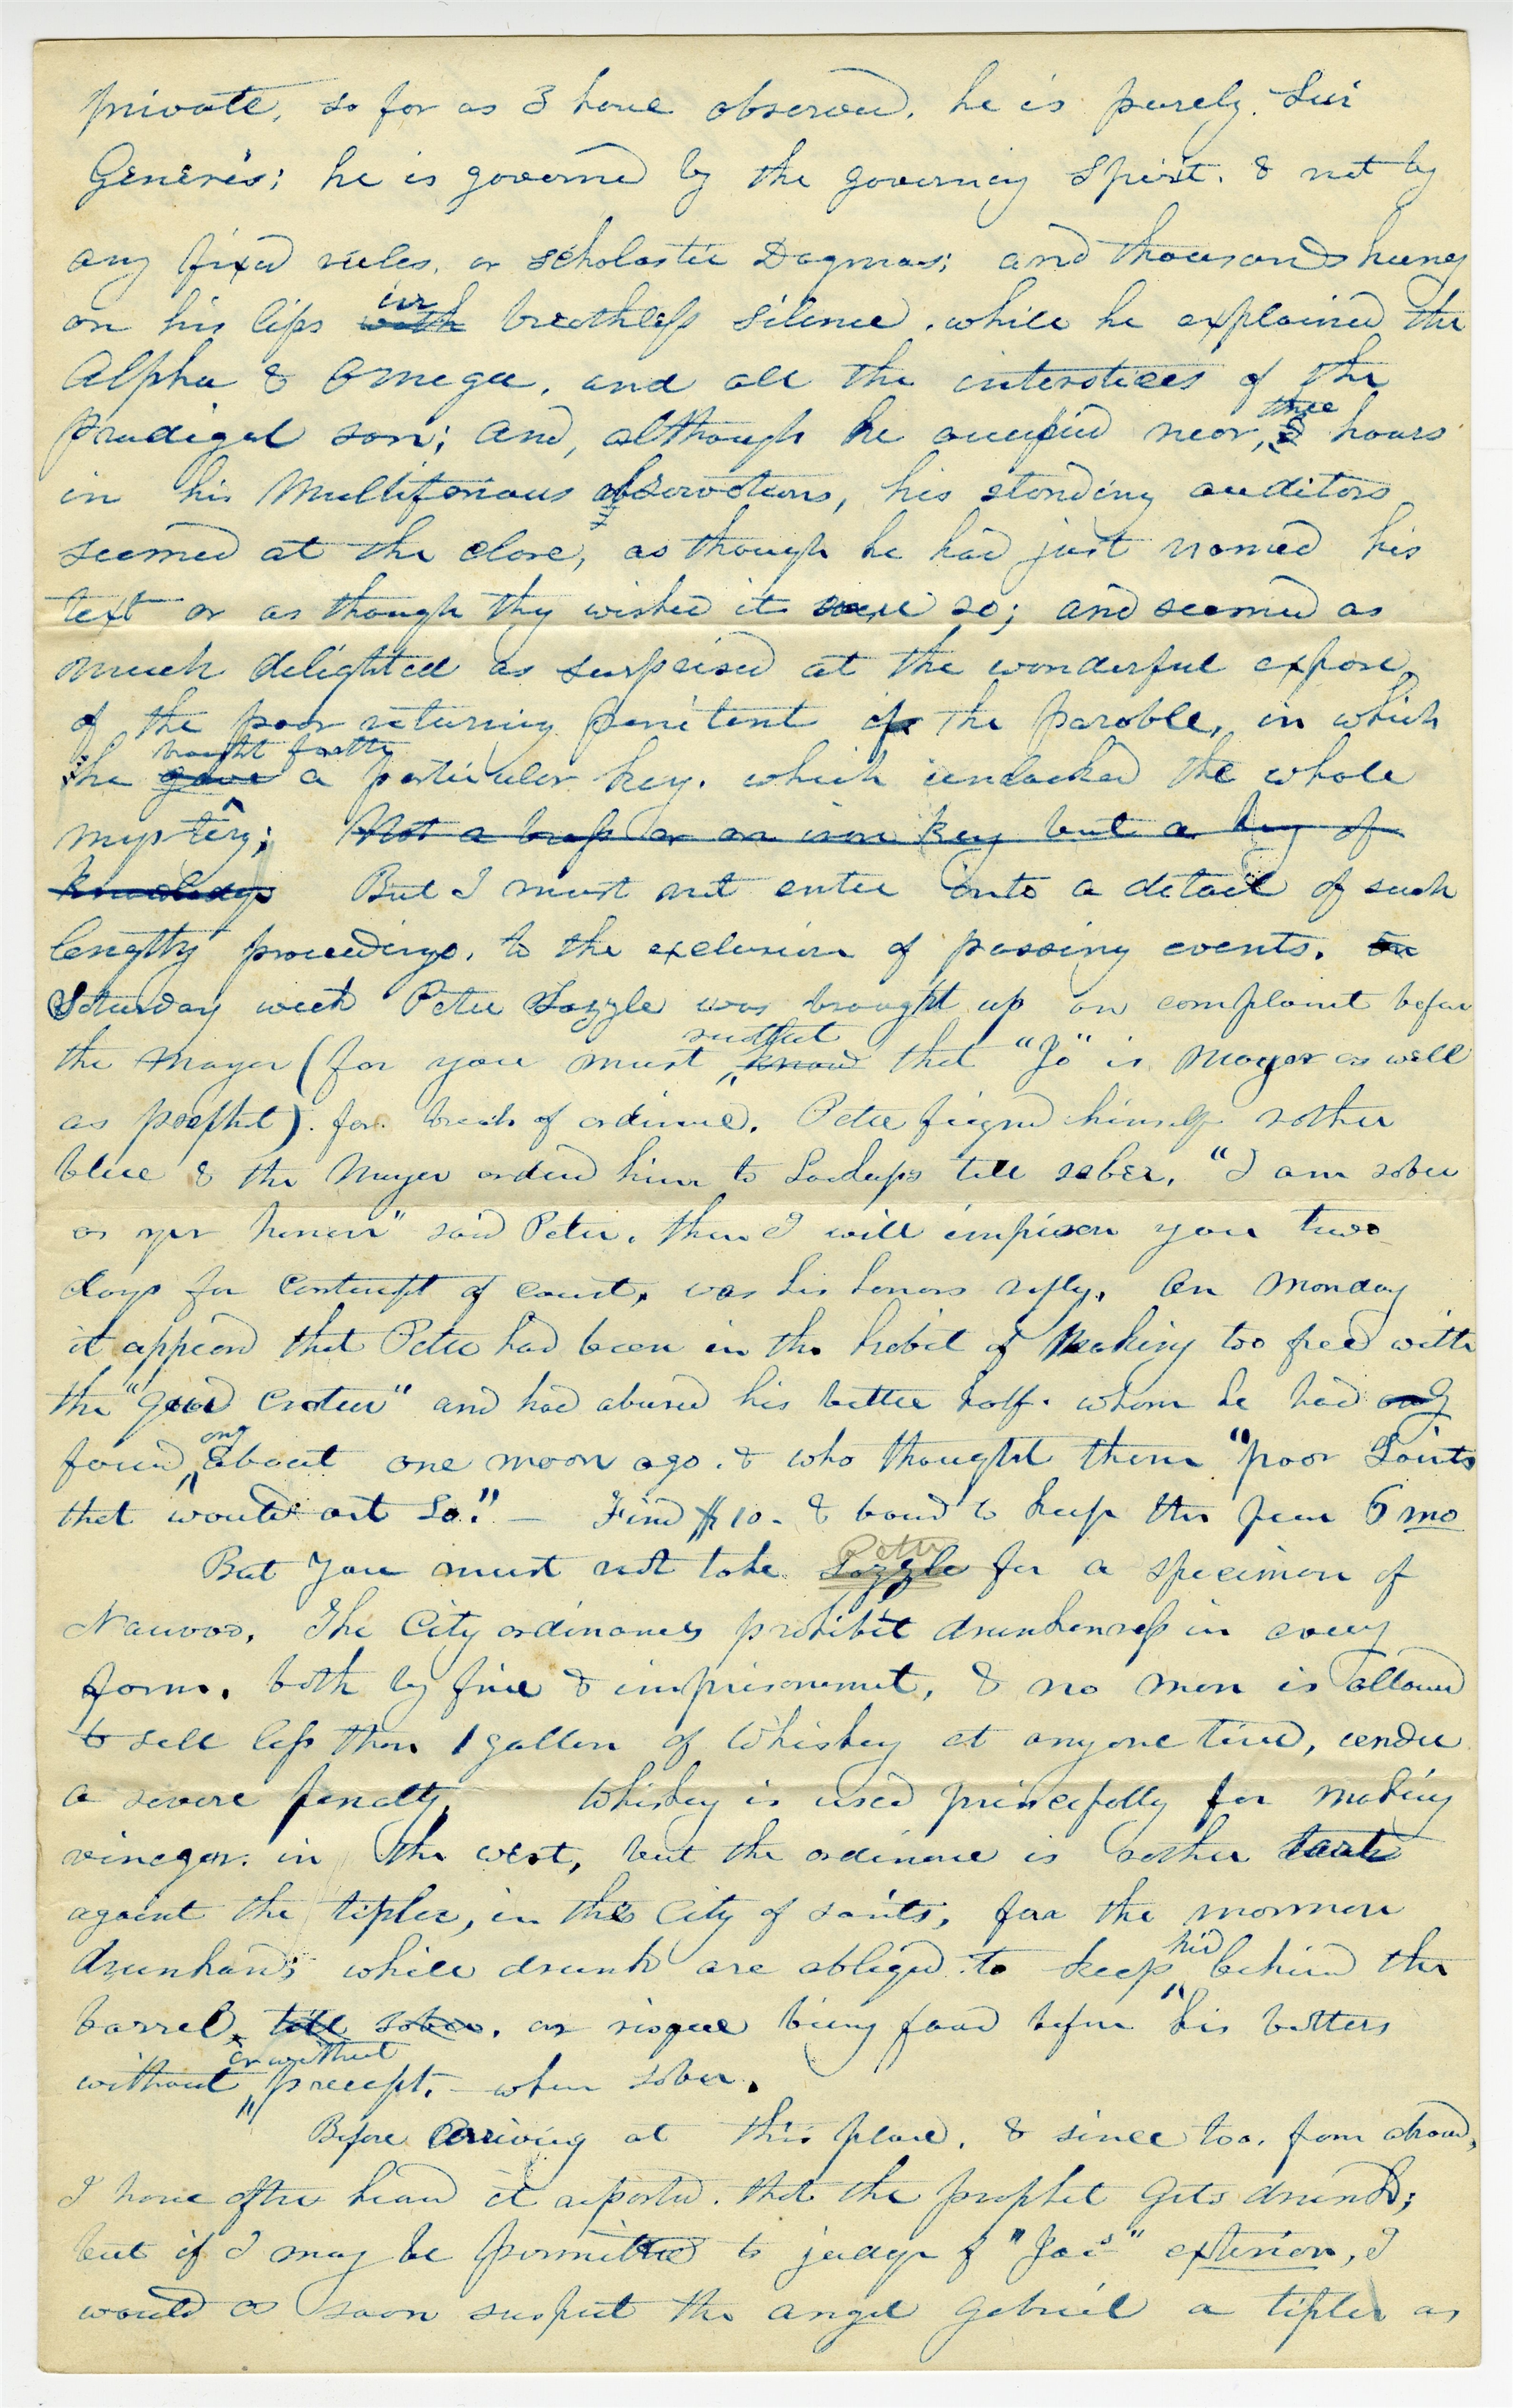 private, so far as I have observed. he is purely. Sui
Generis; he is governed by the governing spirit. & not by
any fixed rules, or scholastic Dogmas; and thousands hung
on his lips with in breathless silence. while he explained the
Alpha & Omega, and all the interstices of the
Prodigal son; and, although he occupied near, 3 three hours
in his Multifarious observations, his standing auditors
seemed at the close, as though he had just named his
text or as though they wished it were so; and seemed as
much delighted as surprised at the wonderful expose
of the poor returning penitent of the parable, in which
he gave brought forth a particular key. which unlocked the whole
mystery; Not a brass or an iron key but a key of
knowledge But I must not enter into a detail of such
lengthy proceedings, to the exclusion of passing events. On
Saturday week Peter Sozzle was brought up on complaint before
the Mayor (for you must know that "Jo" is Mayor as well
as prophet). for breach of ordinance. Peter feigned himself rather
blue & the Mayor ordered him to Lockups till sober, "I am sober
as yor honor" said Peter. then I will imprison you two
days for contempt of court, was his honors reply. On Monday
it appeared that Peter had been in the habit of making too free with
the "good Crater" and had abused his better half. whom he had only
found only about one moon ago. & who thought them "poor Saints
that would act so." — Fined $10. & bound to keep the peace 6 mo
But you must not take Sozzle Peter for a specimen of
Nauvoo. The City ordinances prohibit drunkenness in every
form. both by fine & imprisonment, & no man is allowed
to sell less than 1 gallon of Whiskey at any one time, under
a severe penalty. Whiskey is used principally for making
vinegar. in the west, but the ordinance is rather
against the tipler, in this City of saints, for the mormon
drunkards while drunk are obliged to keep hid behind the
barrel, till sober, or risque being found before his betters
without or without precept. — when sober.
Before arriving at this place. & since too. from abroad,
I have often heard it reported. that the prophet gets drunk;
but if I may be permitted to judge of "Joe's" exterior, I
would as soon suspect the angel Gabriel a tipler as